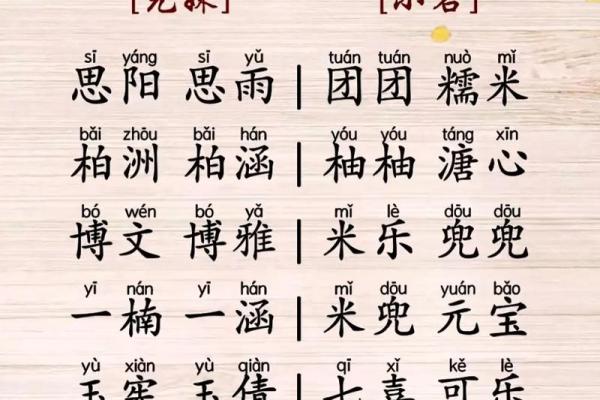 [兄妹] [小名]
sī yáng sī yǔ tuán tuán nuò mǐ
思阳 思雨 | 团团 糯米
bǎi zhōu bǎi hán yóu yóu táng xīn
柏洲 柏涵 | 柚柚 溏心
bó wén bó yǎ mǐ lè dōu dōu
博文 博雅 | 米乐 兜兜
yī nán yī hán mǐ dōu yuán bǎo
一楠 一涵 | 米兜 元宝
yù xiàn yù qiàn qī xǐ kě lè
玉宪 玉倩 七喜 可乐